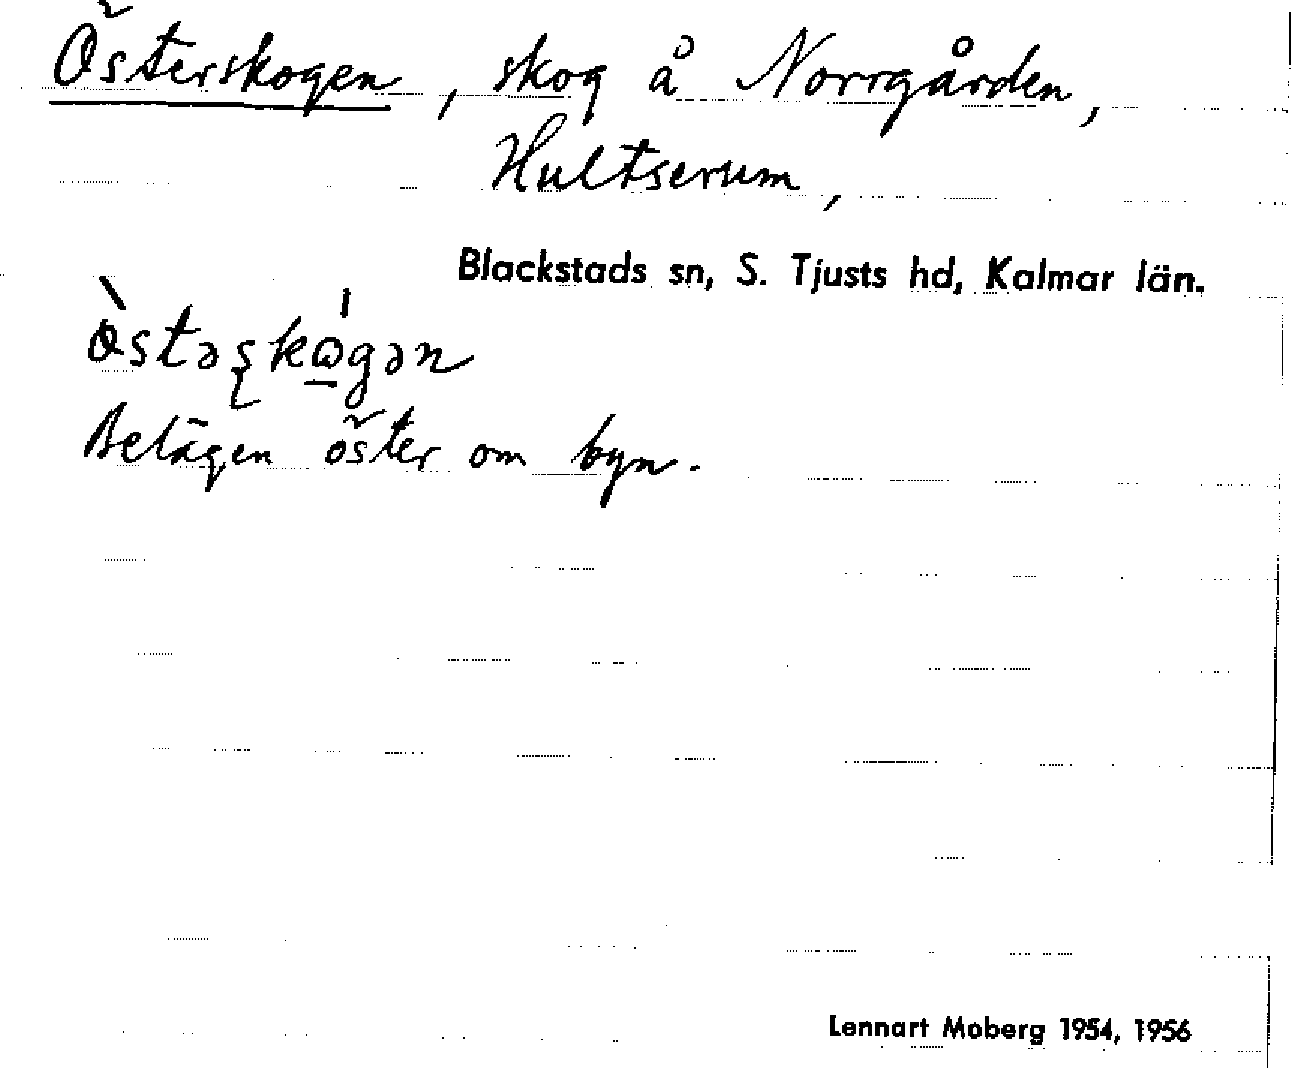 Österskogen, skog å Norrgården,
Hultserum,
Blackstads sn, S. Tjusts hd, Kalmar län.
ö̀stəʂkώ̲gən
Belägen öster om byn.
Lennart Moberg 1954, 1956